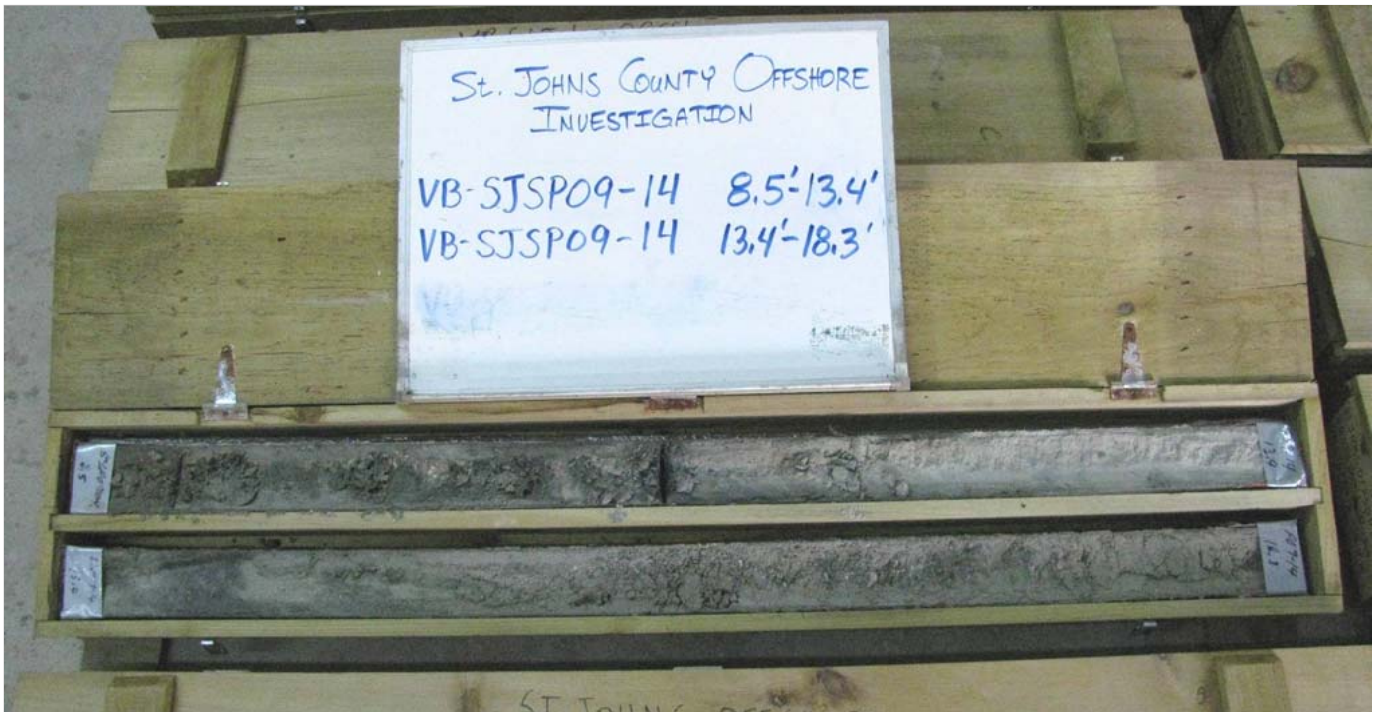 St. JOHNS COUNTY OFFSHORE
INVESTIGATION
VB-SJSP09-14 8.5'-13.4'
VB-SJSP09-14 13.4'-18.3'
8.5
13.4
18.3
ST JOHNS